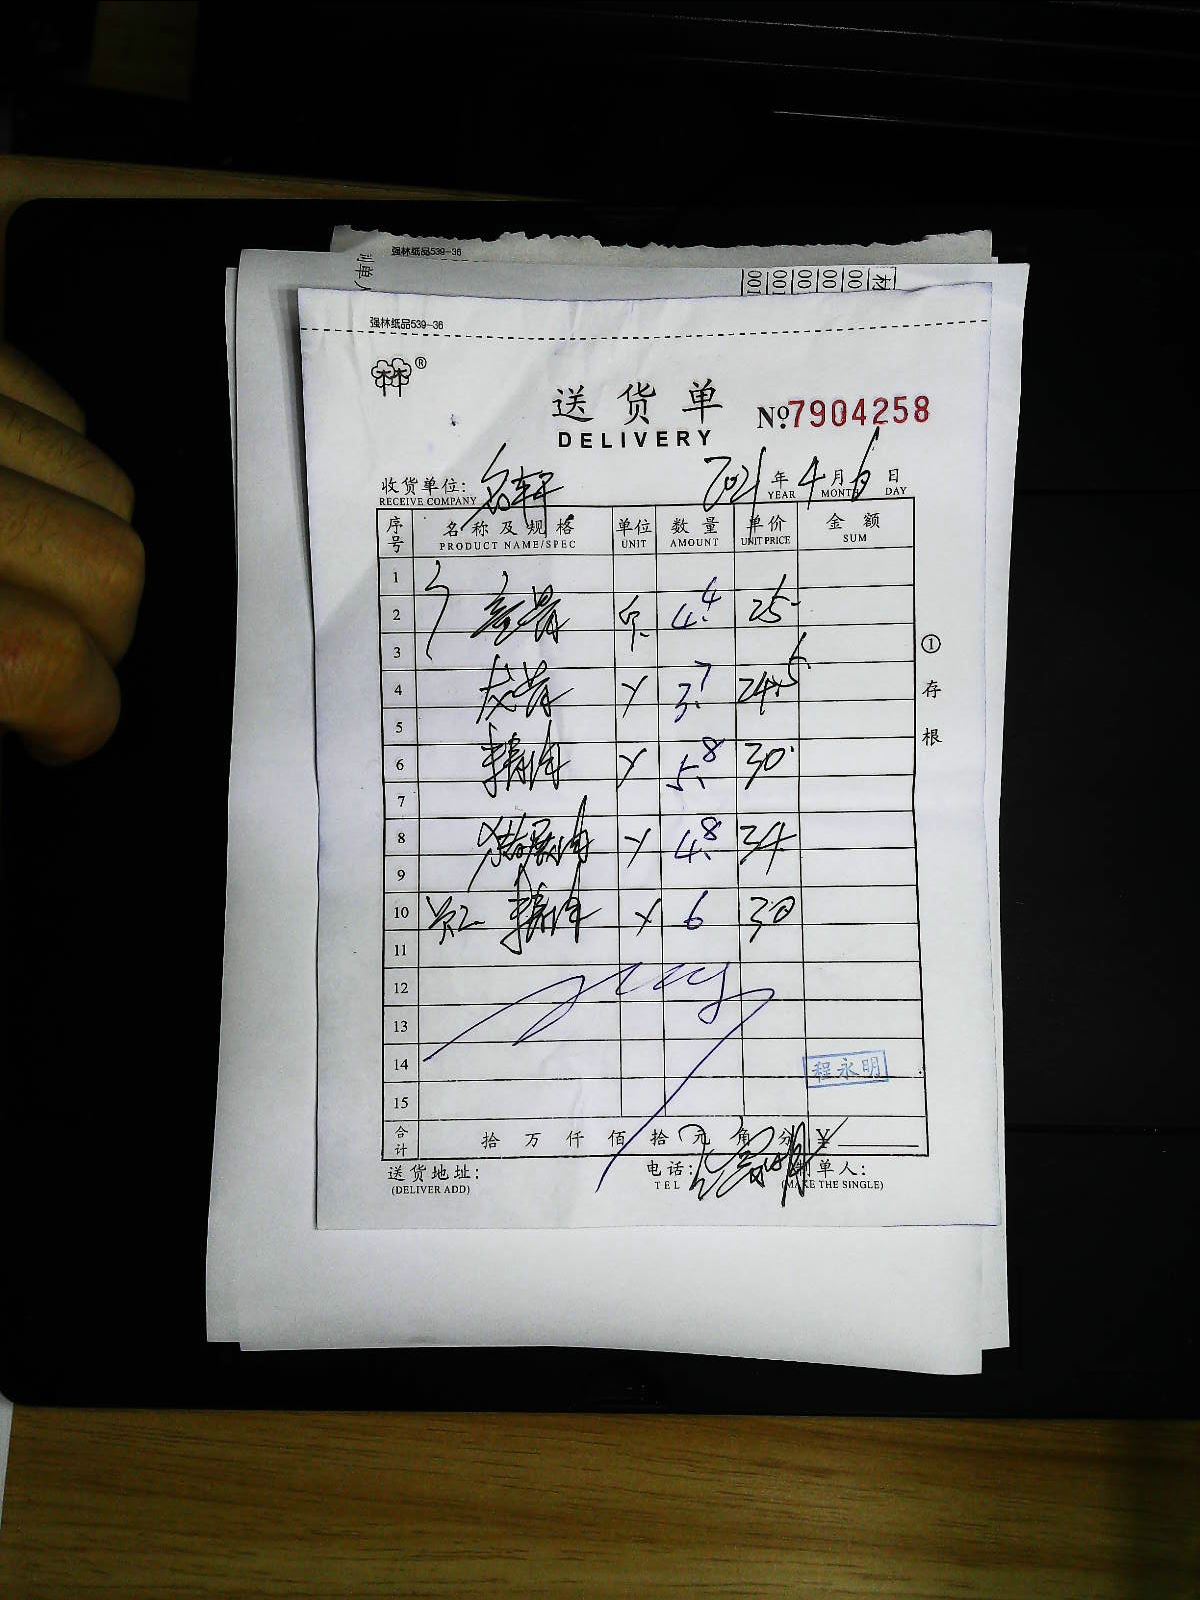 强林纸品539-36
强林纸品539-36
林®
送货单
DELIVERY
№7904258
收货单位: 名轩 2021年4月6日
RECEIVE COMPANY YEAR MONTH DAY
序号 名称及规格 单位 数量 单价 金额
PRODUCT NAME/SPEC UNIT AMOUNT UNIT PRICE SUM
1
2 4.4 25
3
4 龙骨 3.7 24.5
5
6 精肉 5.8 30
7
8 4.8 34
9
10 员工 精肉 6 30
11
12
13
14 程永明
15
合计 拾 万 仟 佰 拾 元 角 分 ¥
送货地址: 电话: 制单人:
(DELIVER ADD) TEL (MAKE THE SINGLE)
①存根